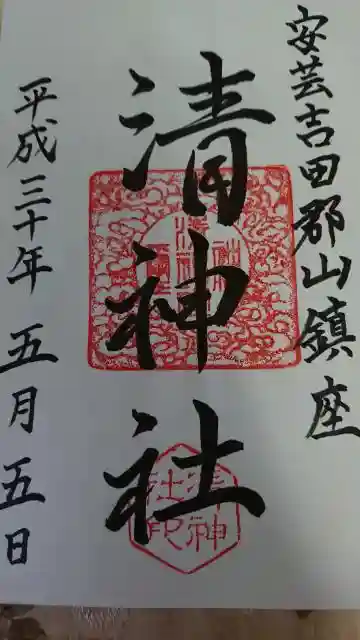 安芸吉田郡山鎮座
清神社
平成三十年五月五日
清神
社印